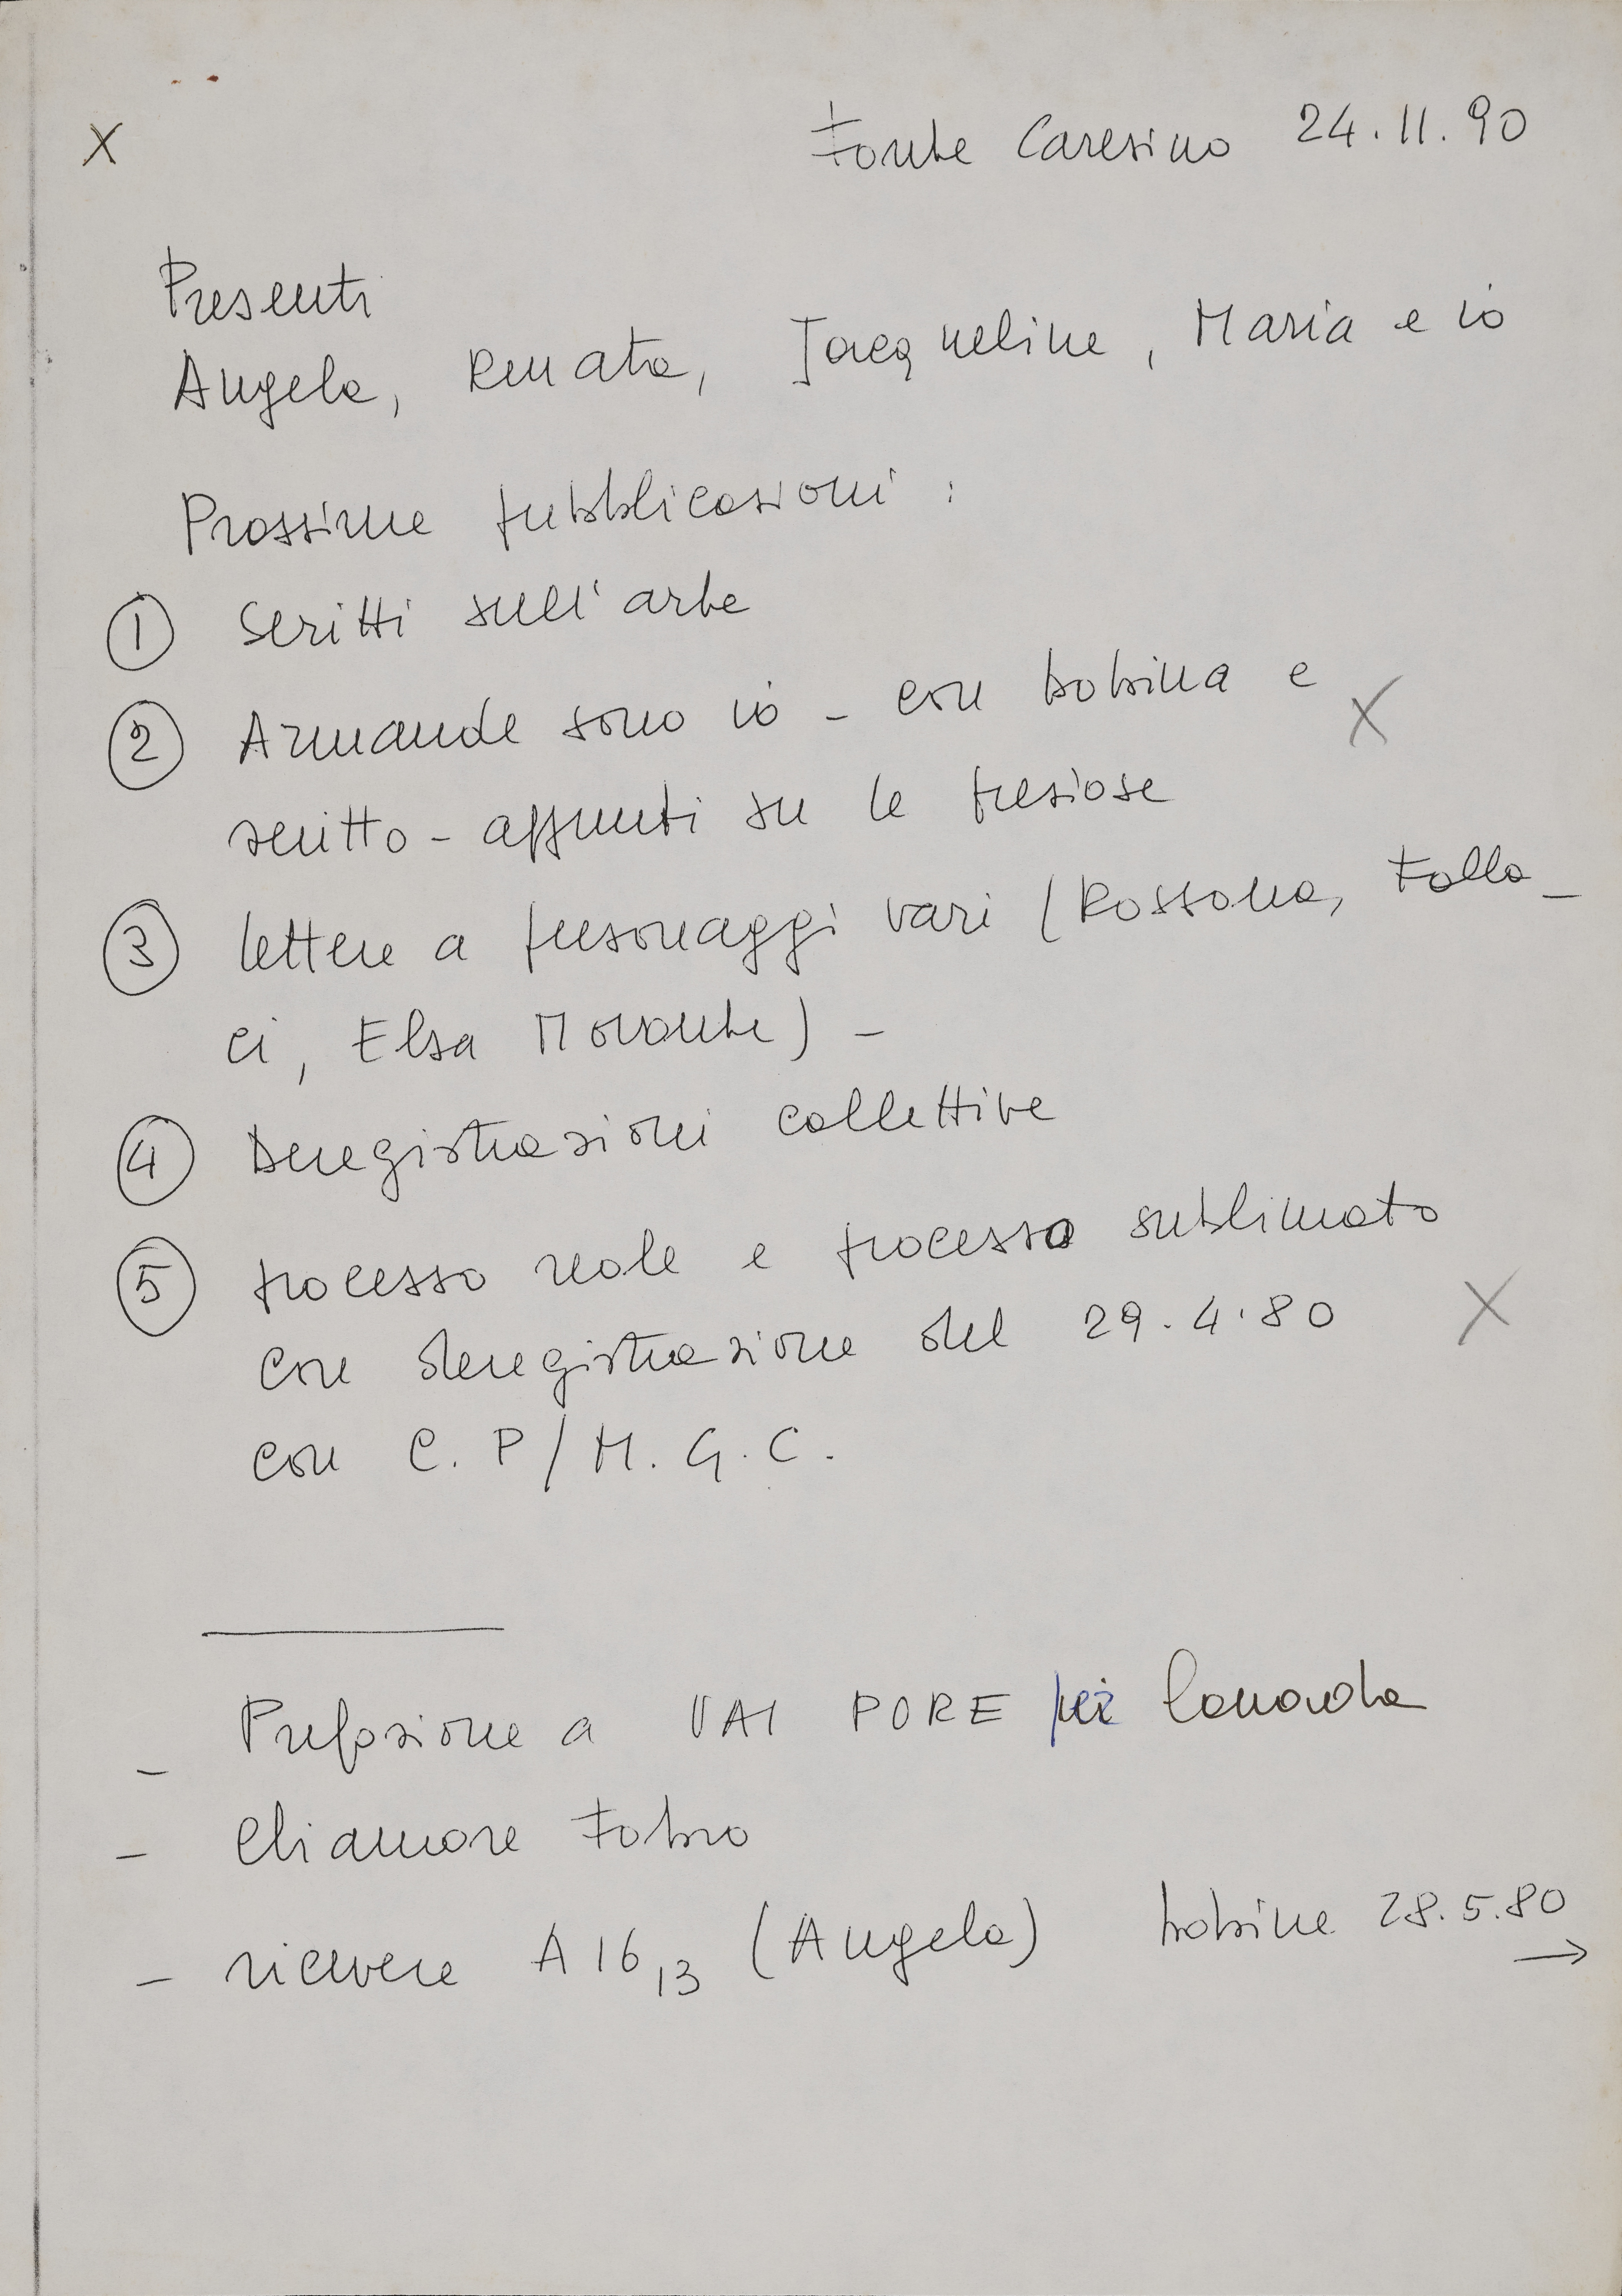 X
Fonte Caresino 24.11.90
Presenti
Angela, Renata, Jacqueline, Maria e io
Prossime pubblicazioni :
① Scritti sull'arte
② Armande sono io - con bobina e X
scritto - appunti su le preziose
③ lettere a personaggi vari (Rossana, Falla-
ci, Elsa Morante) -
④ Deregistrazioni collettive
⑤ processo reale e processo sublimato
con deregistrazione del 29.4.80 X
con C.P/M.G.C.
- Prefazione a VAI PURE per Canada
- Chiamare Fabro
- ricevere A 16,13 (Angela) bobine 28.5.80
→